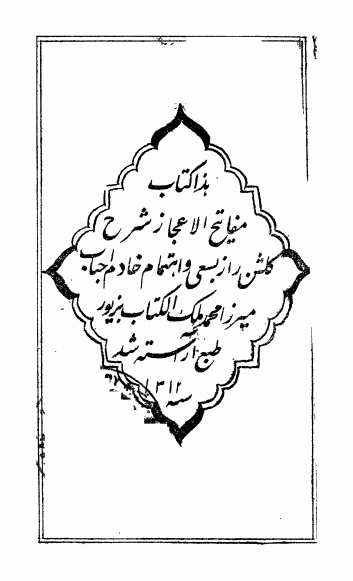 هذا کتاب
مفاتیح الاعجاز شرح
گلشن راز بسعی و اهتمام خادم احباب
میرزا محمد ملک الکتاب بزیور
طبع آراسته شد
سنه ۱۳۱۲